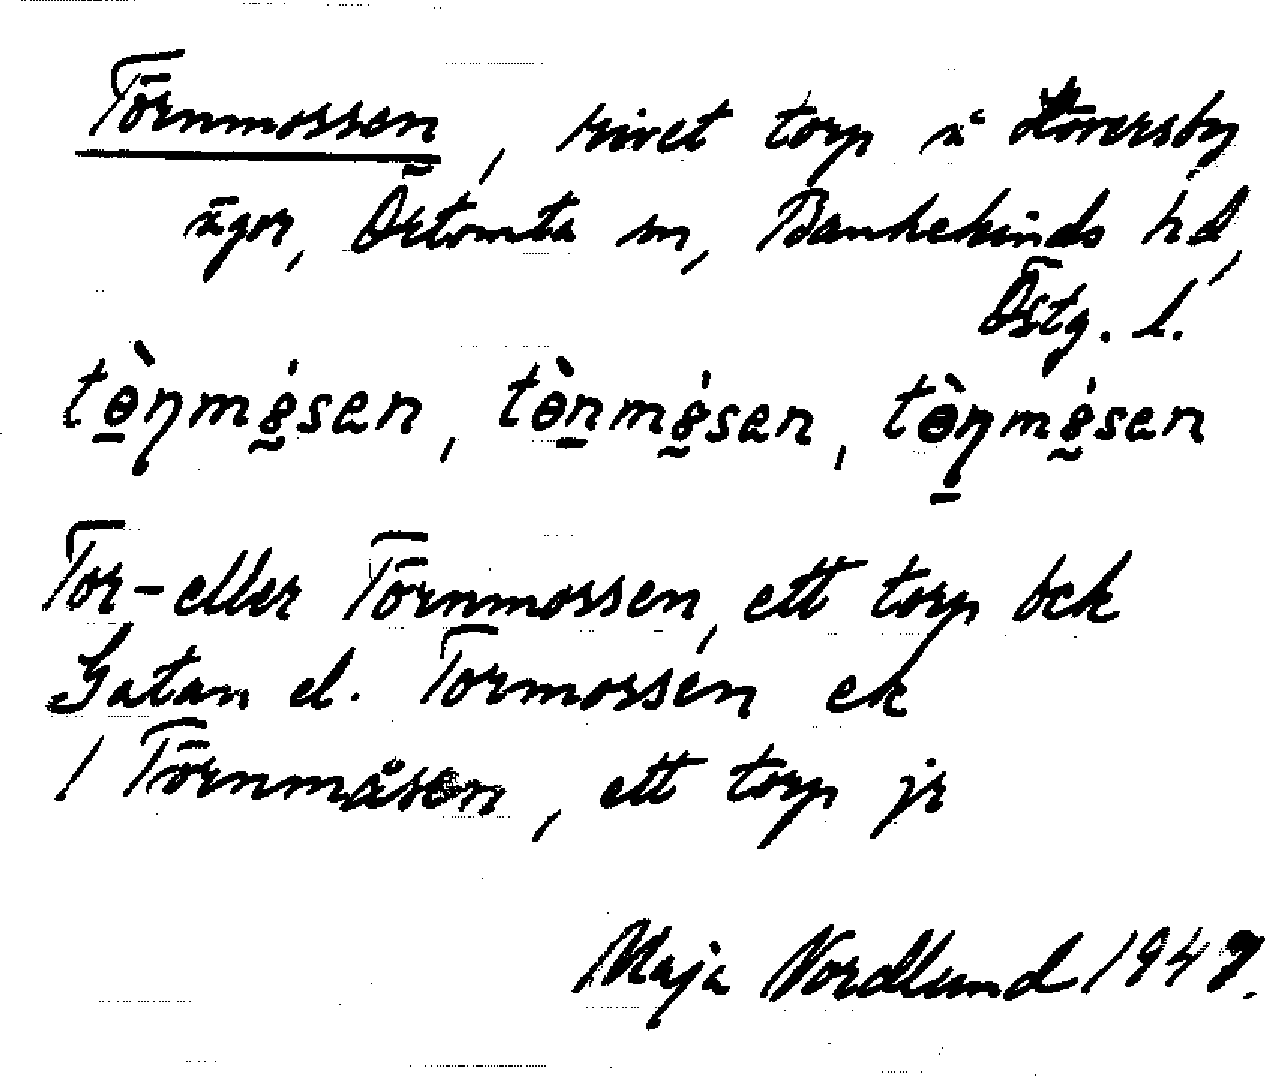 Törnmossen, rivet torp å Hövversby
ägor, Örtomta sn, Bankekinds hd,
Östg. l.
tö̀ṇmo̊́sen, tö̀nmo̊́sen, tö̀ṇmo̊́sen
Tor- eller Törnmossen, ett torp bek
Gatan el. Tormossen ek
/ Törnmåsen, ett torp jr
Maja Nordlund 1947.